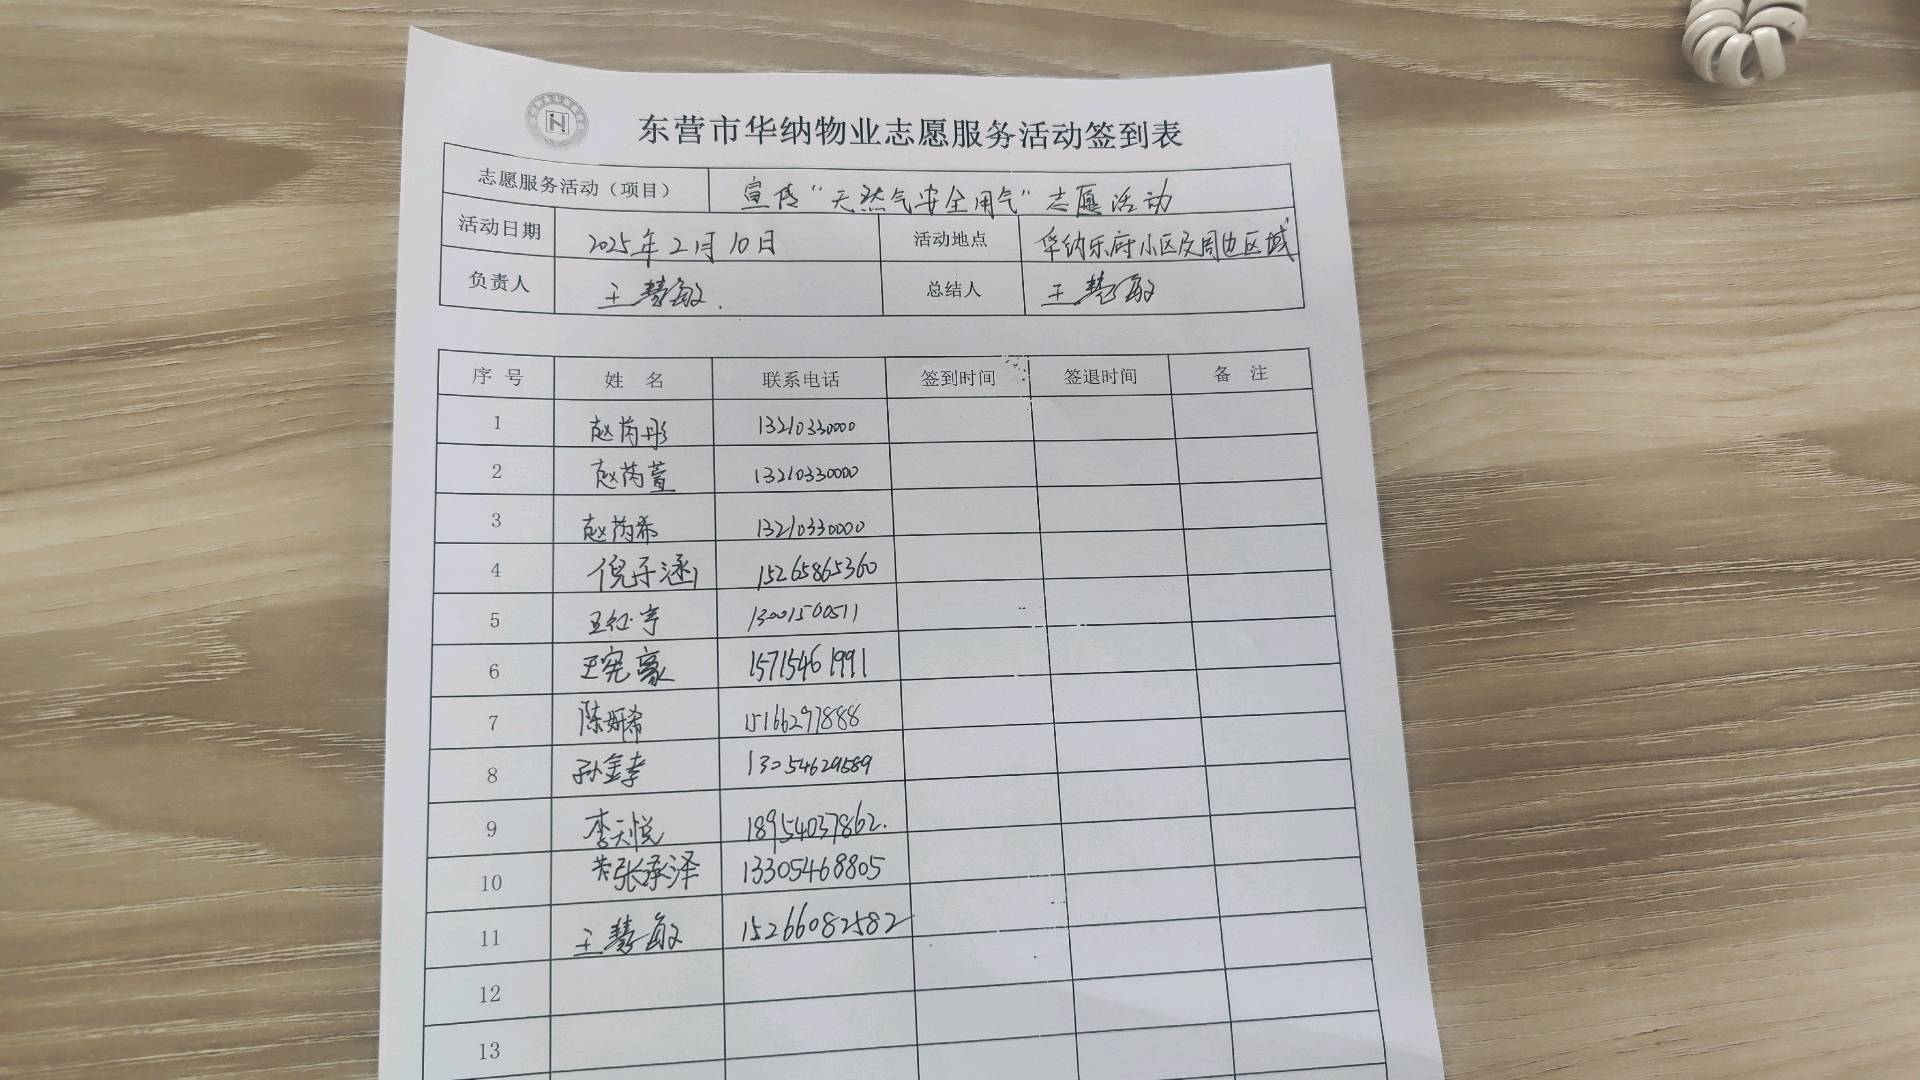 东营市华纳物业志愿服务活动签到表
志愿服务活动（项目） 宣传“天然气安全用气”志愿活动
活动日期 2025年2月10日 活动地点 华纳乐府小区及周边区域
负责人 王慧敏. 总结人 王慧敏
序 号 姓 名 联系电话 签到时间 签退时间 备 注
1 赵芮彤 13210330000
2 赵芮萱 13210330000
3 赵芮希 13210330000
4 倪子涵 15265865360
5 13001560511
6 王宪豪 15715461991
7 陈妍希 15166297888
8 13054629589
9 李天悦 18954037862.
10 张承泽 13305468805
11 王慧敏 15266082582
12
13